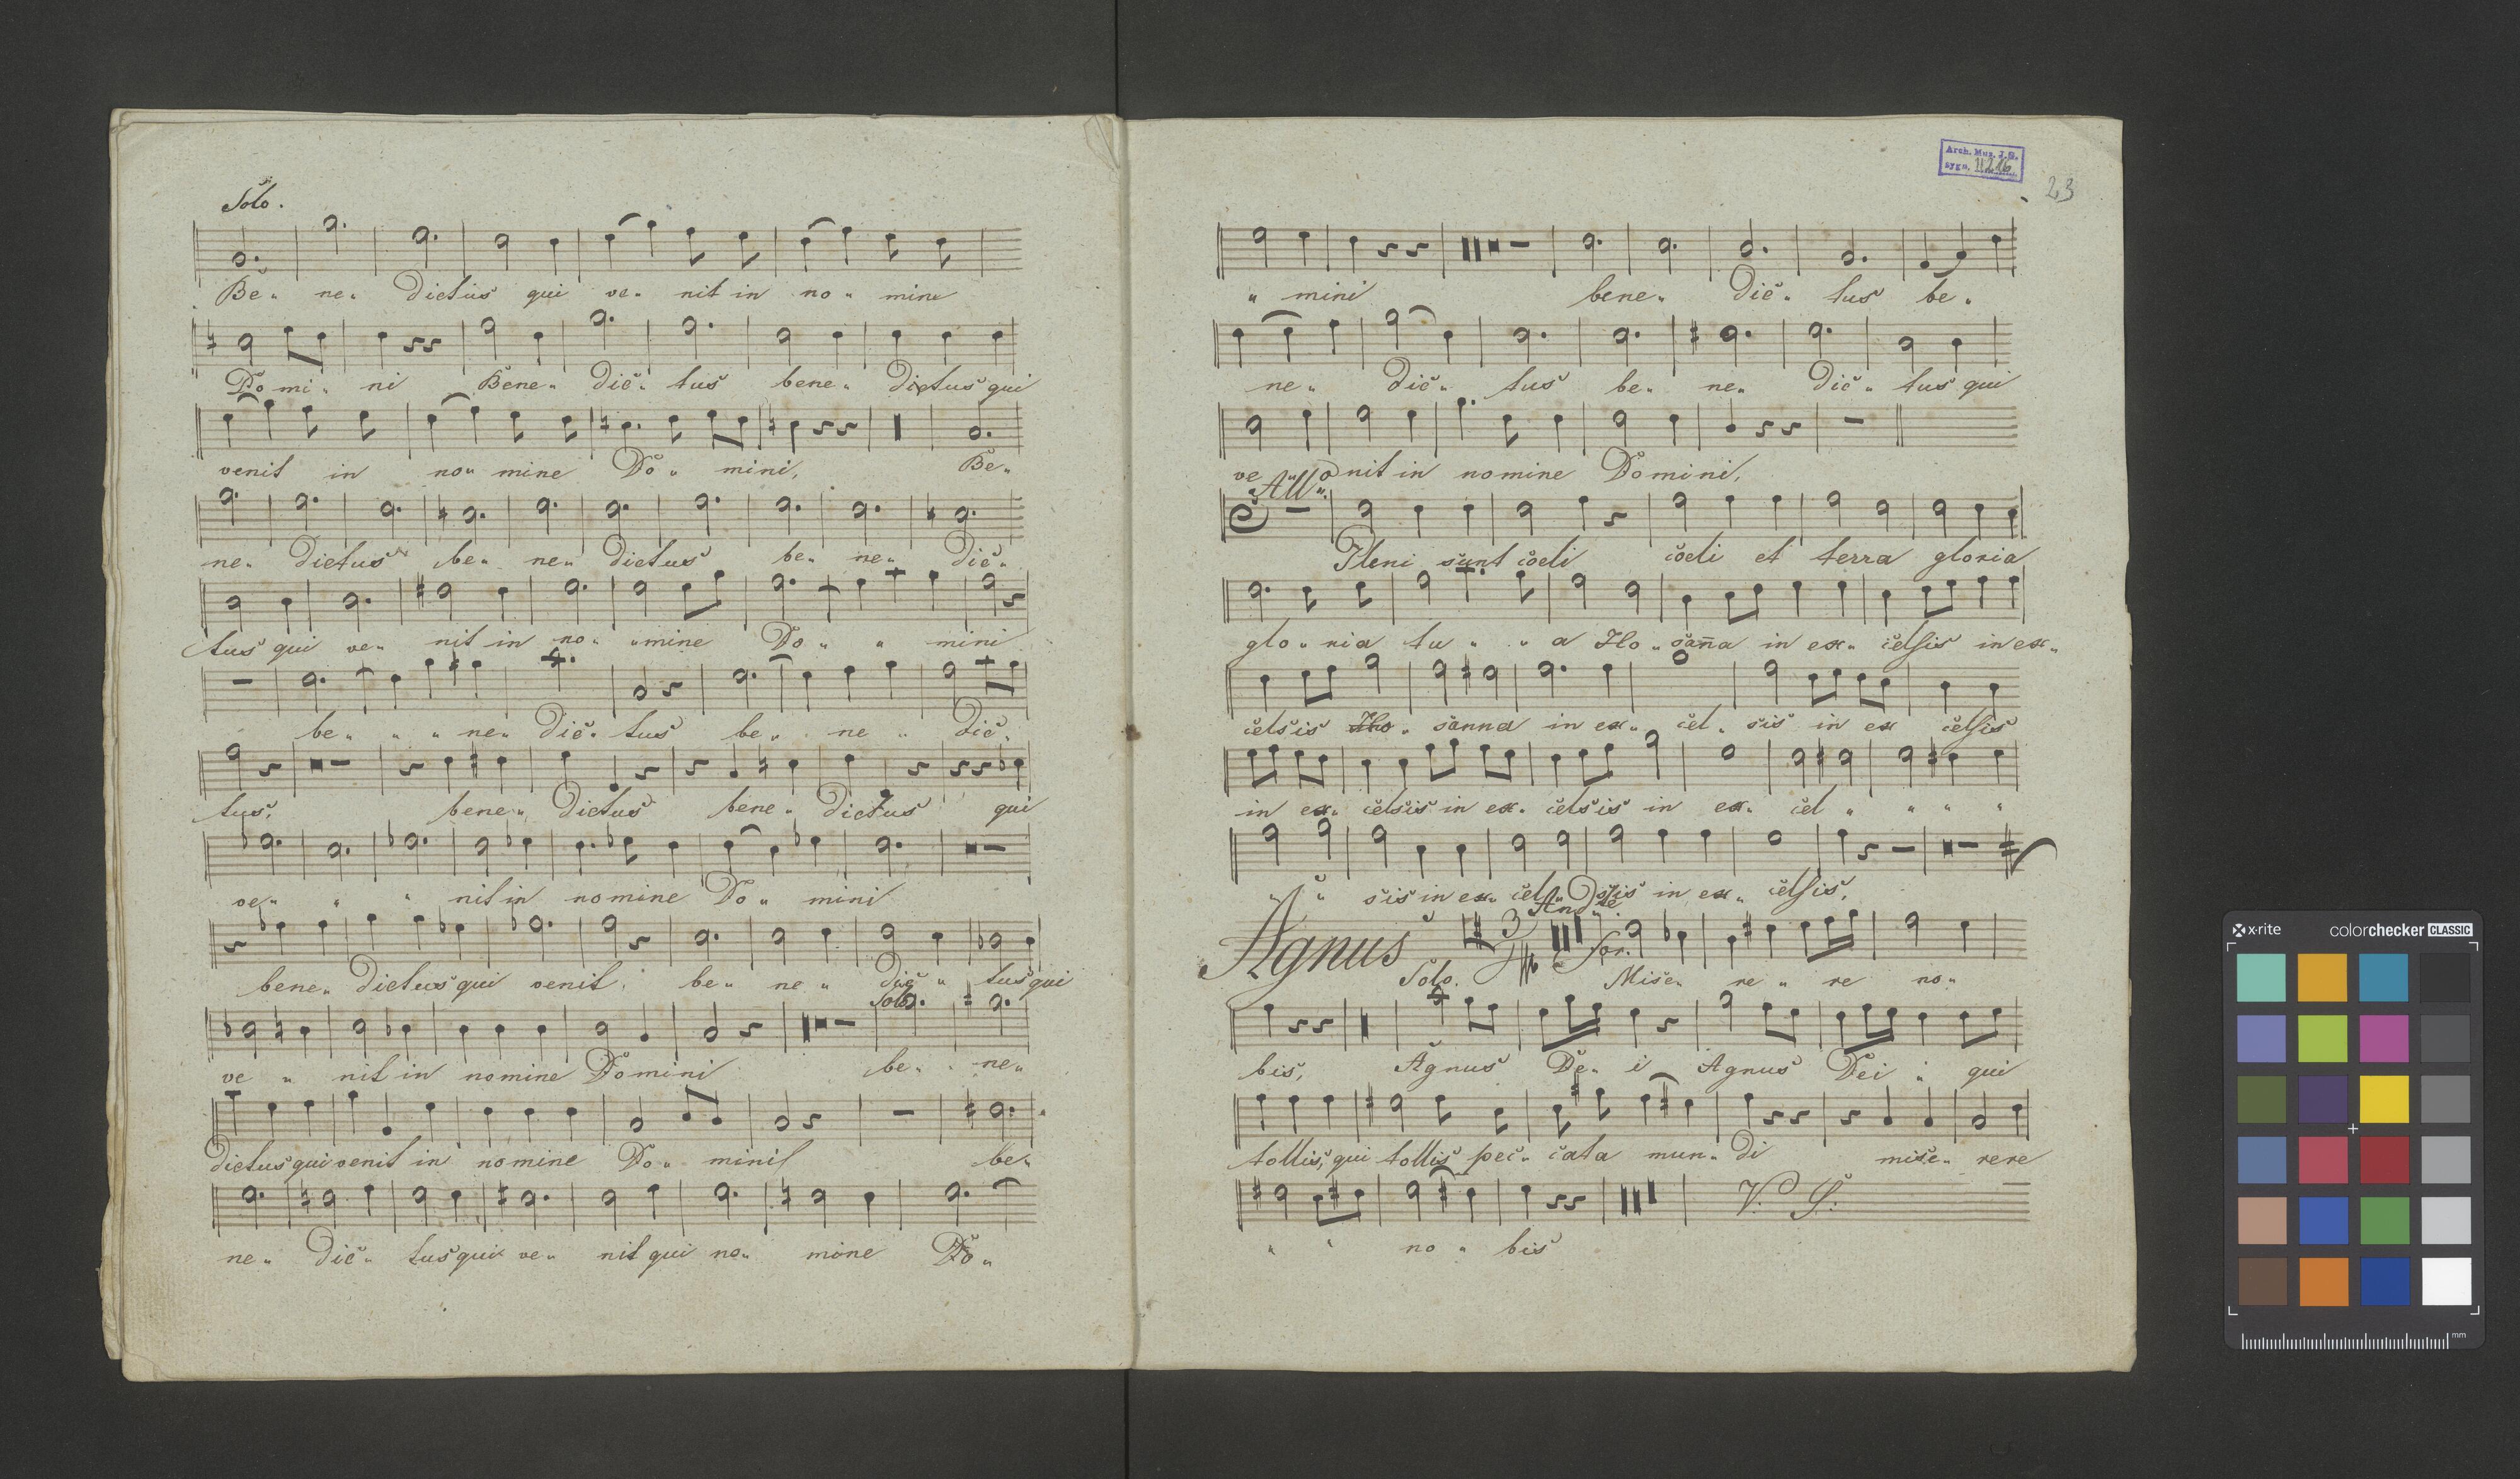 Solo.
Be„ ne„ dictus qui ve„ nit in no„ mine
Do mi„ ni Bene„ dic„ tus bene„ dictus qui
venit in no„ mine Do„ mini, Be„
ne„ dictus be„ ne„ dictus be„ ne„ dic„
tus qui ve„ nit in no„ „mine Do„ „ mini
be„ „ „ ne„ dic„ tus be„ ne „ dic„
tus, bene„ dictus bene„ dictus qui
ve„ „ „ nit in nomine Do„ mini
bene„ dictus qui venit, be„ ne„ dic„ tus qui
Solo.
ve „ nit in nomine Domini be„ ne„
dictus qui venit in nomine Do„ mini be„
ne„ dic„ tus qui ve„ nit qui no„ mine Do„
Arch. Muz. J.G.
sygn. II216
23
„ mini bene„ dic„ tus be„
ne„ dic„ tus be„ ne„ dic„ tus qui
ve nit in nomine Domini,
All„o
Pleni sunt coeli coeli et terra gloria
glo„ ria tu„ „ a Ho„ san̄a in ex„ celsis in ex„
celsis Ho„ sanna in ex„ cel„ sis in ex celsis
in ex„ celsis in ex„ celsis in ex„ cel „ „ „ „
„ „ sis in ex„ cel„ sis in ex„ celsis,
Agnus And„te 3 Solo. Mise„ re„ re no„
bis, Agnus De„ i Agnus Dei „ qui
tollis, qui tollis pec„ cata mun„ di mise„ rere
„ „ no„ bis
V. S.
x-rite
colorchecker CLASSIC
mm